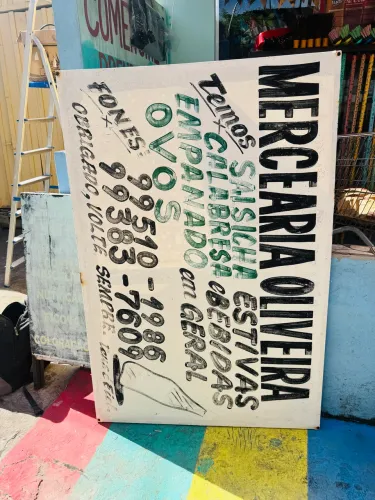 MERCEARIA OLIVEIRA
Temos
SALSICHA
CALABRESA
EMPANADO
OVOS
ESTIVAS
e BEBIDAS
em GERAL
FONES:
99510-1986
99383-7609
OBRIGADO, VOLTE SEMPRE.